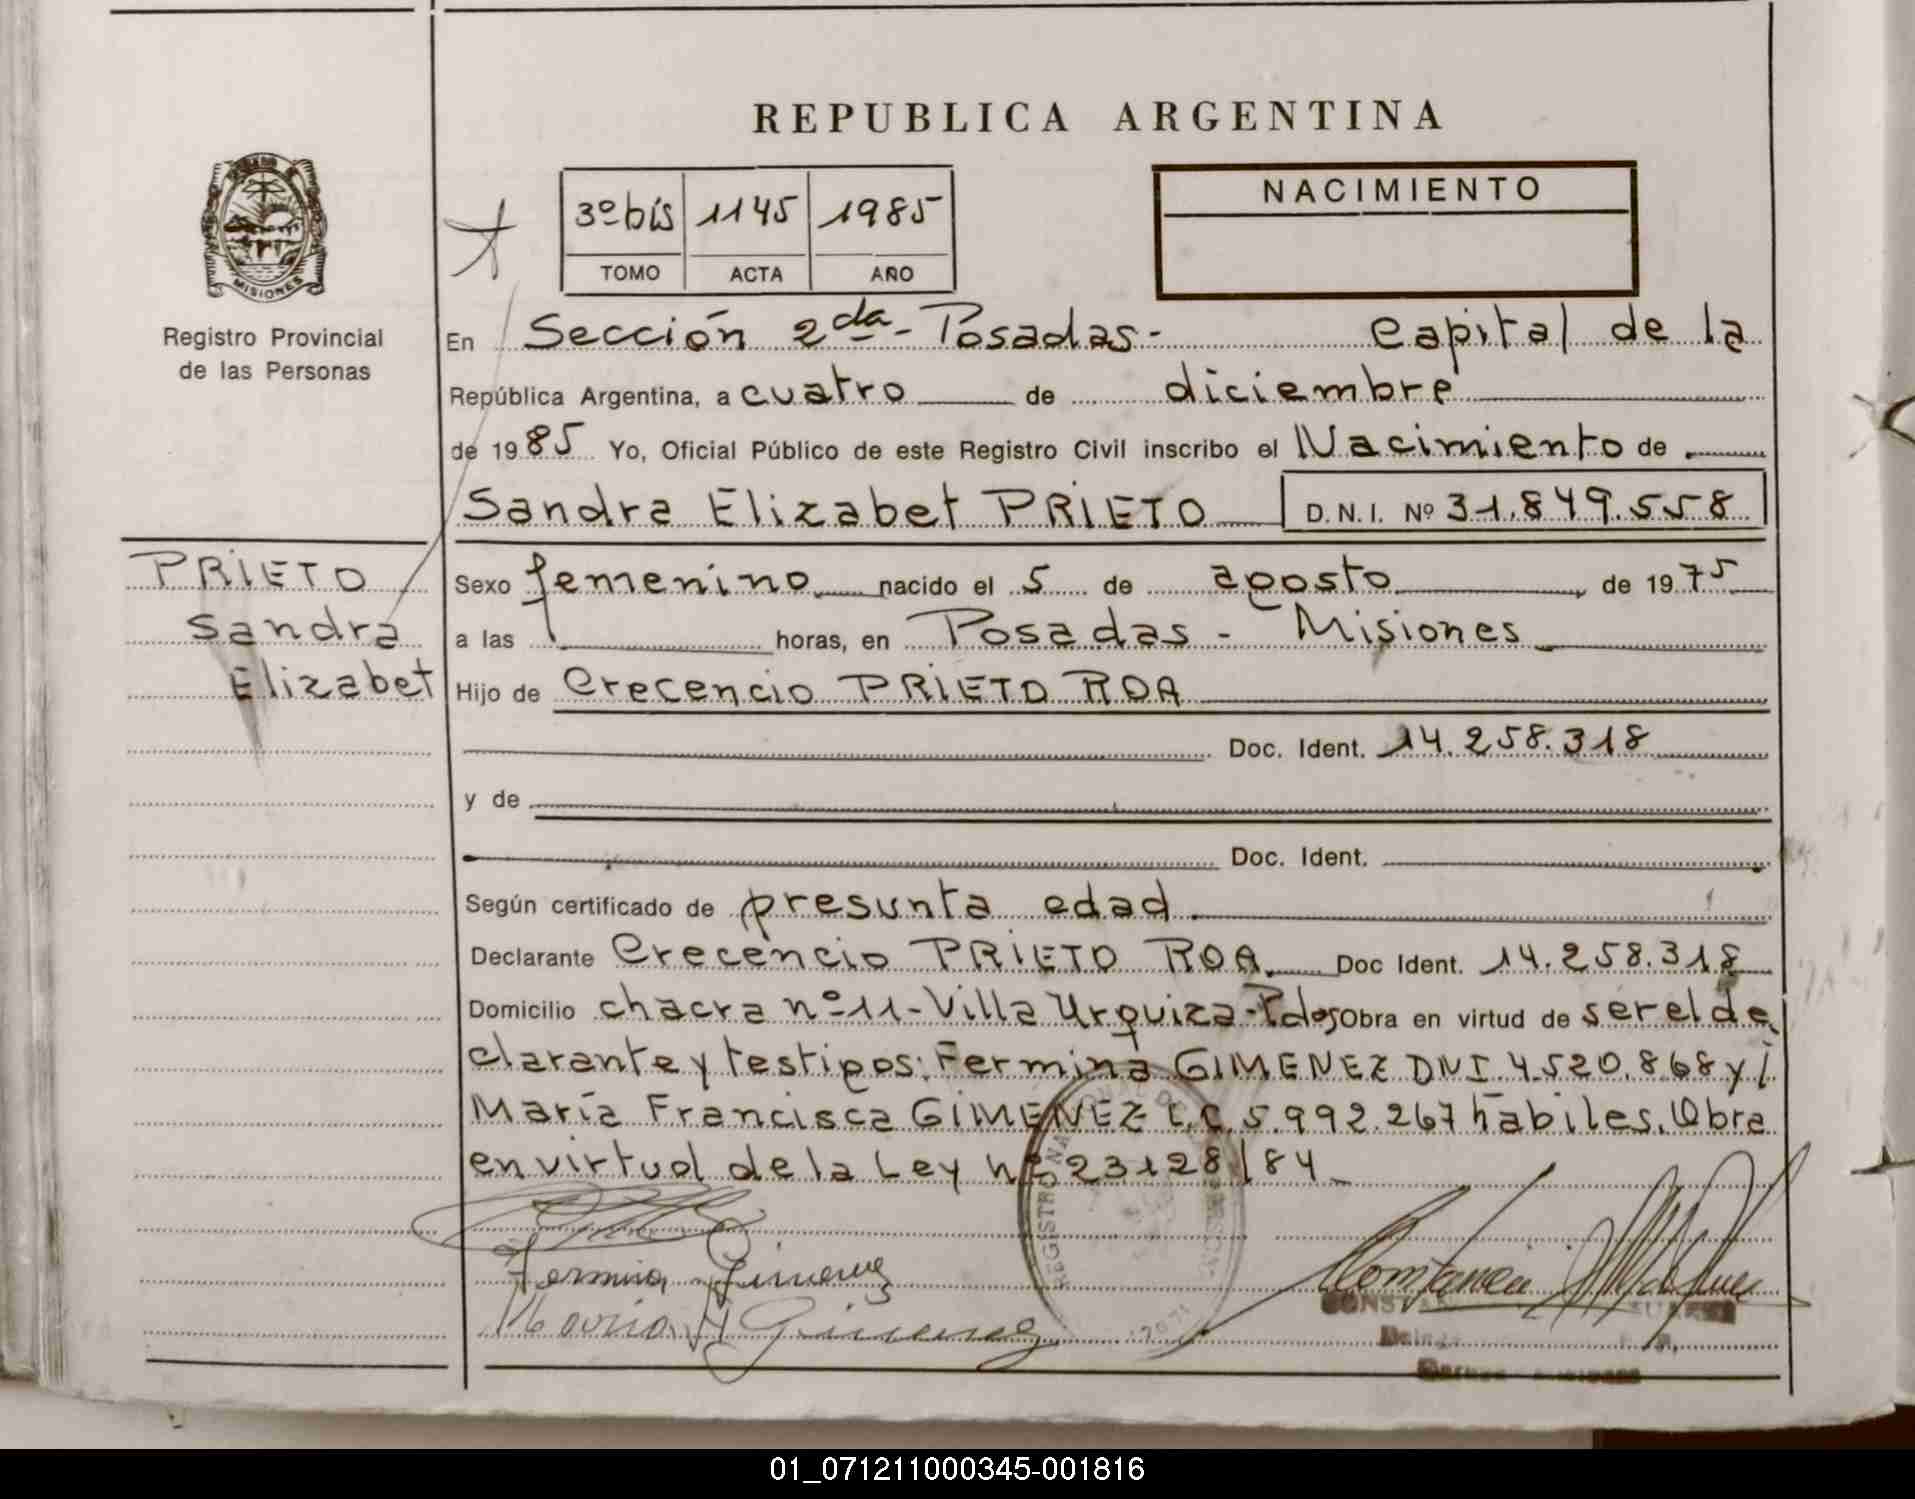 REPUBLICA ARGENTINA
3º bis 1145 1985
TOMO ACTA AÑO
NACIMIENTO
MISIONES
Registro Provincial
de las Personas
En Sección 2da - Posadas - Capital de la
República Argentina, a cuatro de diciembre
de 1985 Yo, Oficial Público de este Registro Civil inscribo el Nacimiento de
Sandra Elizabet PRIETO D.N.I. Nº 31.849.558
PRIETO
Sandra
Elizabet
Sexo femenino nacido el 5 de agosto de 1975
a las horas, en Posadas - Misiones
Hijo de Crecencio PRIETO ROA
Doc. Ident. 14.258.318
y de
Doc. Ident.
Según certificado de presunta edad
Declarante Crecencio PRIETO ROA Doc Ident. 14.258.318
Domicilio chacra nº 11 - Villa Urquiza - Pdas Obra en virtud de ser el de
clarante y testigos: Fermina GIMENEZ DNI 4.520.868 y /
María Francisca GIMENEZ L.C. 5.992.267 hábiles. Obra
en virtud de la Ley nº 23128/84
Fermina Gimenez
Maria F Gimenez
REGISTRO
01_071211000345-001816